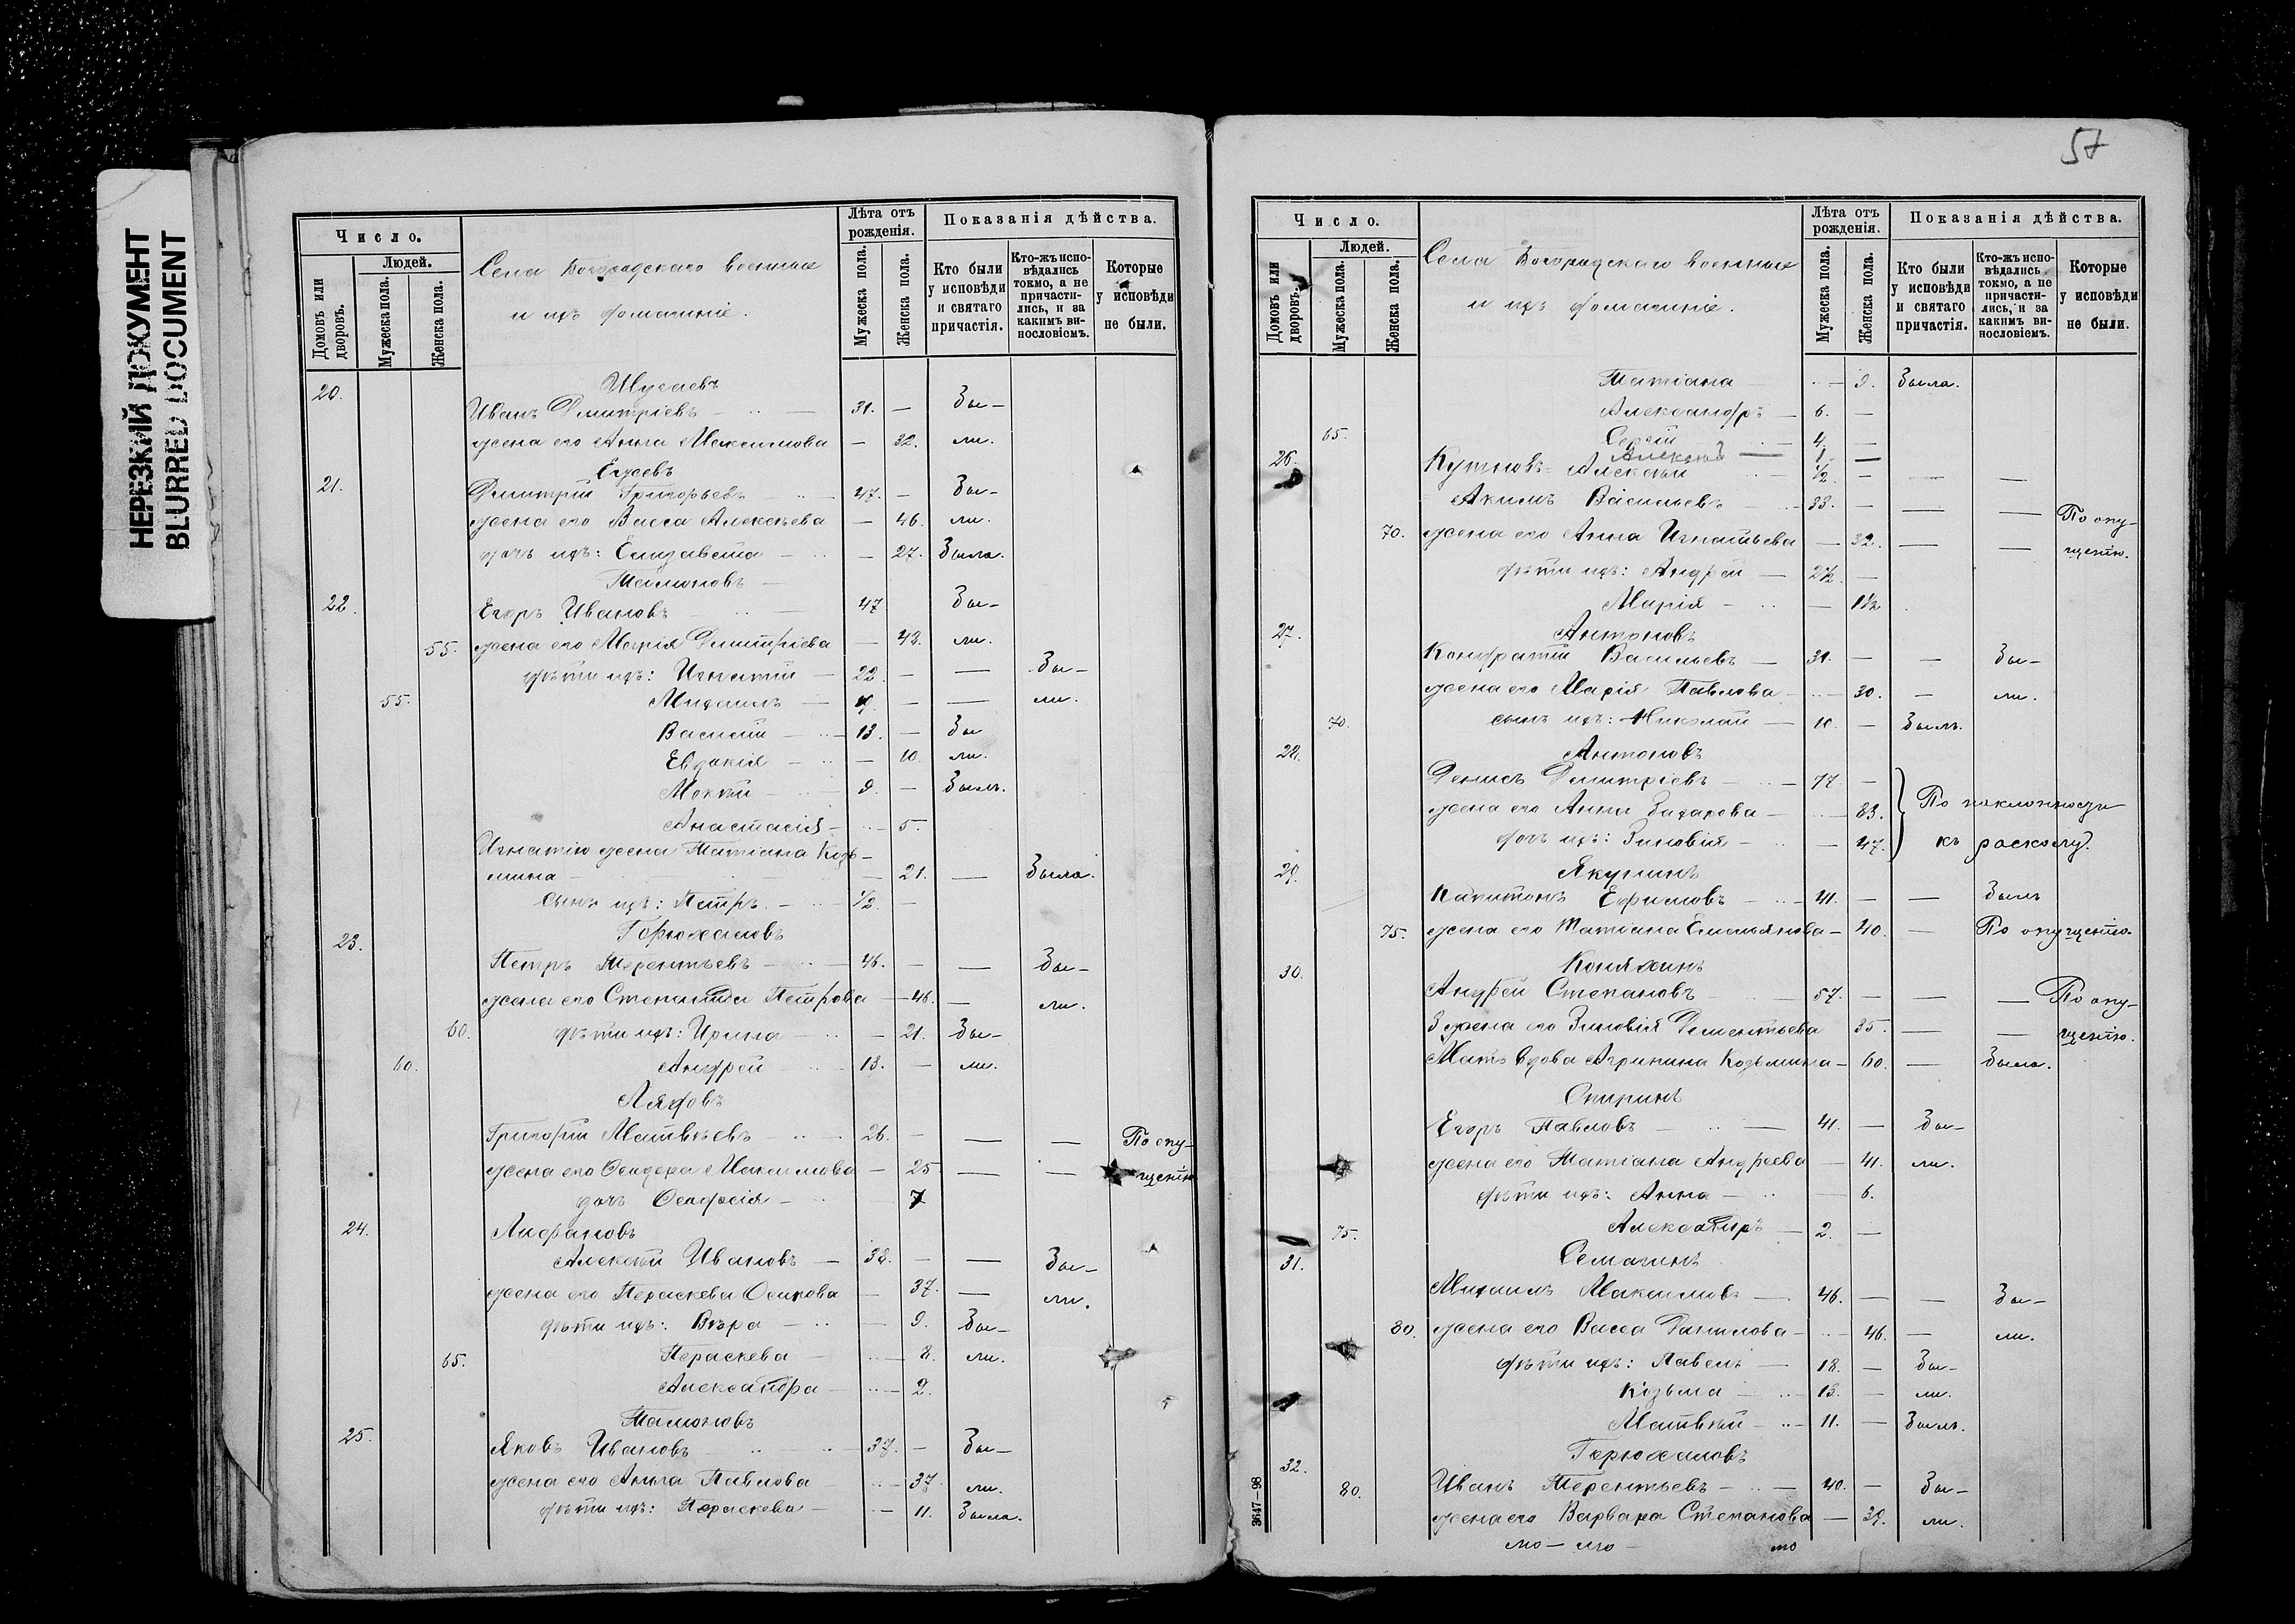 НЕРЕЗКИЙ ДОКУМЕНТ
BLURRED DOCUMENT
Число.
Людей.
Домовъ или дворовъ.
Мужеска пола.
Женска пола.
Села военные
и ихъ домашніе.
Лѣта отъ рожденія.
Мужеска пола.
Женска пола.
Показанія дѣйства.
Кто были у исповѣди и святаго причастія.
Кто-жъ исповѣдались токмо, а не причастились, и за какимъ винословіемъ.
Которые у исповѣди не были.
20.
Иванъ Дмитріевъ 31. — Бы-
жена его Анна Максимова — 32. ли.
21.
Дмитрій Григорьевъ 47. — Бы-
жена его Васса Алексѣева — 46. ли.
дочь ихъ: Елизавета — 27. Была.
Мамоновъ
22. Егоръ Ивановъ 47 Бы-
55. жена его Марія Димитріева — 43. ли.
дѣти ихъ: Игнатій — 22. — — Бы-
55. Михаилъ — — — ли.
Василій — 13. — Бы
Евдокія — — 10. ли.
Мокѣй — 9. — Былъ.
Анастасія — 5.
Игнатія жена Татіана Козь-
мина — 21. — Была.
сынъ ихъ: Петръ — 1/2. —
23. Горюхановъ
Петръ Терентьевъ — 46. — — Бы-
жена его Степанида Петрова — 46. — ли.
60. дѣти ихъ: Ирина — 21. Бы-
60. Андрей 13. — ли.
Ляховъ
Григорій Матвѣевъ 26. — — — По опу-
жена его Ѳеодора Максимова — 25 — — щенію
дочь Ѳеодосія — 7
24. Анфановъ
Алексѣй Ивановъ — 38. — — Бы-
жена его Параскева Осипова — 37. — ли.
дѣти ихъ: Вѣра — 9. Бы-
65. Параскева — 8. ли.
Александра — 2.
Мамоновъ
25. Яковъ Ивановъ 37. — Бы-
жена его Анна Павлова — 37 ли.
дѣти ихъ: Параскева — 11. Была.
57
Число.
Людей.
Домовъ или дворовъ.
Мужеска пола.
Женска пола.
Села военные
и ихъ домашніе.
Лѣта отъ рожденія.
Мужеска пола.
Женска пола.
Показанія дѣйства.
Кто были у исповѣди и святаго причастія.
Кто-жъ исповѣдались токмо, а не причастились, и за какимъ винословіемъ.
Которые у исповѣди не были.
Татіана — 9. Была.
Александръ — 6. —
65. Сергій 4. —
26. Алексѣй — 1. —
Алексѣй 1/2 — — —
Акимъ Васильевъ — 33. — — — По опу-
70. жена его Анна Игнатьева — 32. — — щенію.
дѣти ихъ: Андрей — 2½. —
Марія — — 1½
27. Антоновъ
Кондратій Васильевъ — 31. — — Бы-
жена его Марія Павлова — 30. — ли.
70. сынъ ихъ: Николай — 10. — Былъ.
28. Антоновъ
Денисъ Димитріевъ — 77. —
жена его Анна Захарова — 83. По наклонности
дочь ихъ: Зиновія — 47. къ расколу.
29. Якунинъ
Капитонъ Ефимовъ — 41. — — Былъ
75. жена его Татіана Емельянова — 40. — По опущенію.
30. Коняхинъ
Андрей Степановъ 57. — — — По опу-
жена его Зиновія Дементьева 35. — — щенію.
Мать вдова Агрипина Козьмина — 60. — Была.
Спиринъ
Егоръ Павловъ — 41. — Бы-
жена его Татіана Андреева — 41. ли.
дѣти ихъ: Анна — 6.
75. Александръ — 2. —
31. Семагинъ
Михаилъ Максимовъ — 46. — — Бы-
80. жена его Васса Данилова — 46. — ли.
дѣти ихъ: Павелъ — 18. — Бы-
Козьма — 13. — ли.
Матвѣй — 11. — Былъ.
Горюхановъ
32.
80. Иванъ Терентьевъ — 40. — Бы-
жена его Варвара Степанова — 39. ли.
3647—98